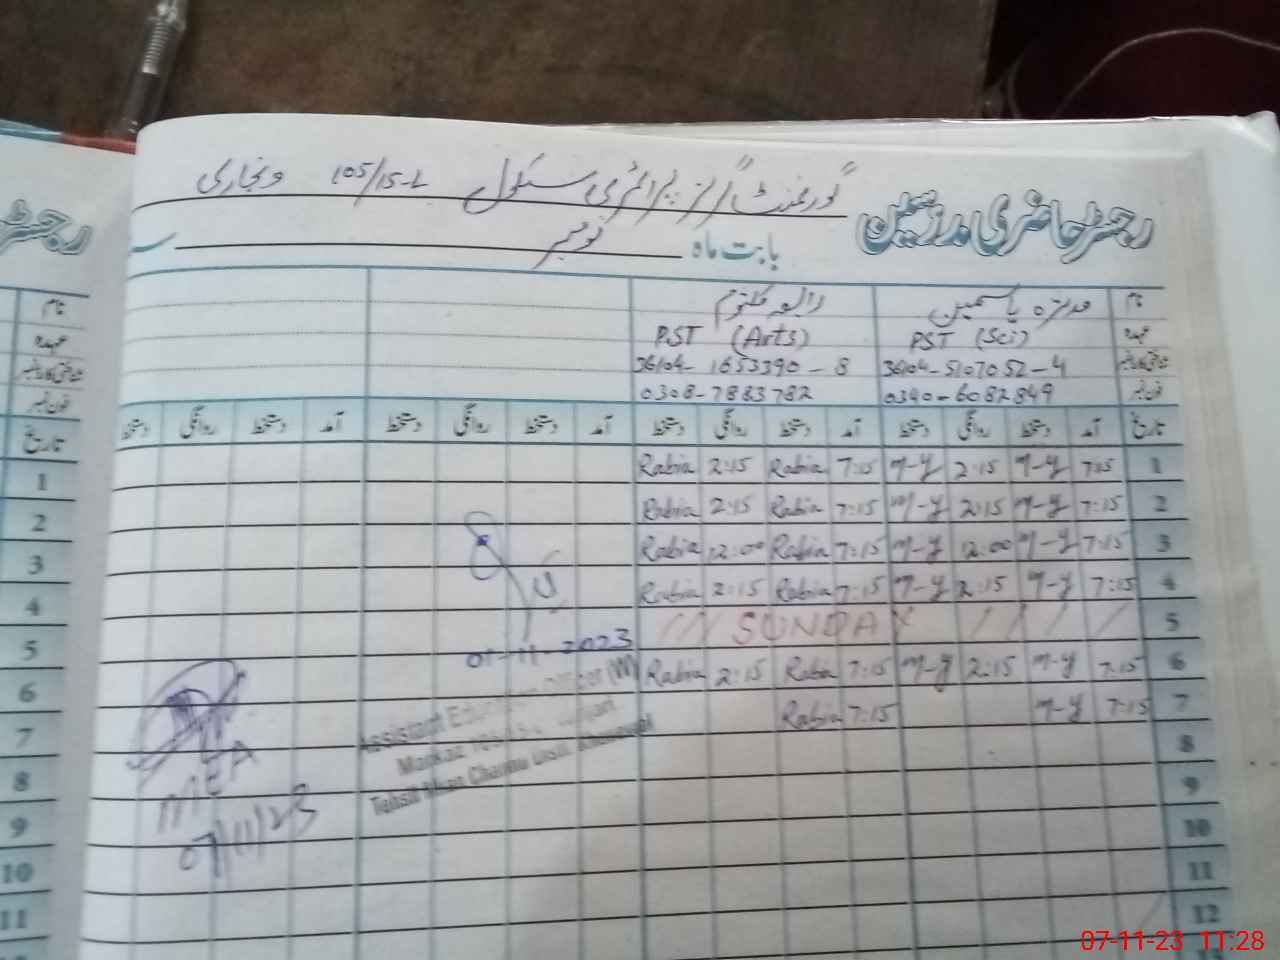 گورنمنٹ گرلز پرائمری سکول 105/15-L ونجاری
رجسٹر حاضری مدرسین
بابت ماہ نومبر
نام یاسمین رابعہ کلثوم
عہدہ PST (Sci) PST (Arts)
شناختی کارڈ نمبر 36104-5107052-4 36104-1653390-8
فون نمبر 0340-6082849 0308-7883782
تاریخ آمد دستخط روانگی دستخط آمد دستخط روانگی دستخط آمد دستخط روانگی دستخط آمد دستخط روانگی دستخط
1 7:15 M-Y 2:15 M-Y 7:15 Rabia 2:15 Rabia
2 7:15 M-Y 2:15 M-Y 7:15 Rabia 2:15 Rabia
3 7:15 M-Y 12:00 M-Y 7:15 Rabia 12:00 Rabia
4 7:15 M-Y 2:15 M-Y 7:15 Rabia 2:15 Rabia
5 SUNDAY
6 7:15 M-Y 2:15 M-Y 7:15 Rabia 2:15 Rabia
7 7:15 M-Y 7:15 Rabia
8
9
10
11
12
01-11-2023
Assistant Education Officer (W)
Markaz
Tehsil Mian Channu Distt. Khanewal
MEA
07/11/23
رجسٹر
نام
عہدہ
شناختی کارڈ نمبر
فون نمبر
تاریخ
1
2
3
4
5
6
7
8
9
10
11
07-11-23 11:28